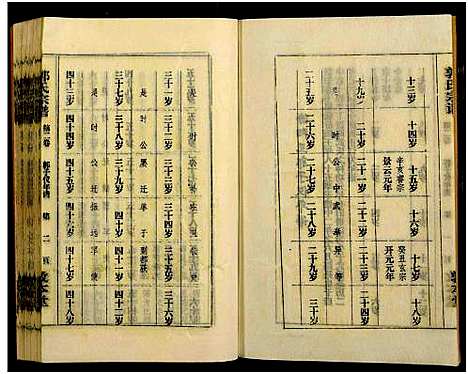 郭氏宗谱
十三岁 十四岁 十五岁 十六岁 十七岁 十八岁
辛亥睿宗
景云元年
癸丑玄宗
开元元年
十九岁 二十岁 二十一岁 二十二岁 二十三岁 二十四岁
是时公中武举异等
二十五岁 二十六岁 二十七岁 二十八岁 二十九岁 三十岁
三十一岁 三十二岁 三十三岁 三十四岁 三十五岁 三十六岁
是时公累迁单于副都护
三十七岁 三十八岁 三十九岁 四十岁 四十一岁 四十二岁
是时公迁振远军使
四十三岁 四十四岁 四十五岁 四十六岁 四十七岁 四十八岁
郭氏宗谱 郭子仪年谱 第二页 敦本堂